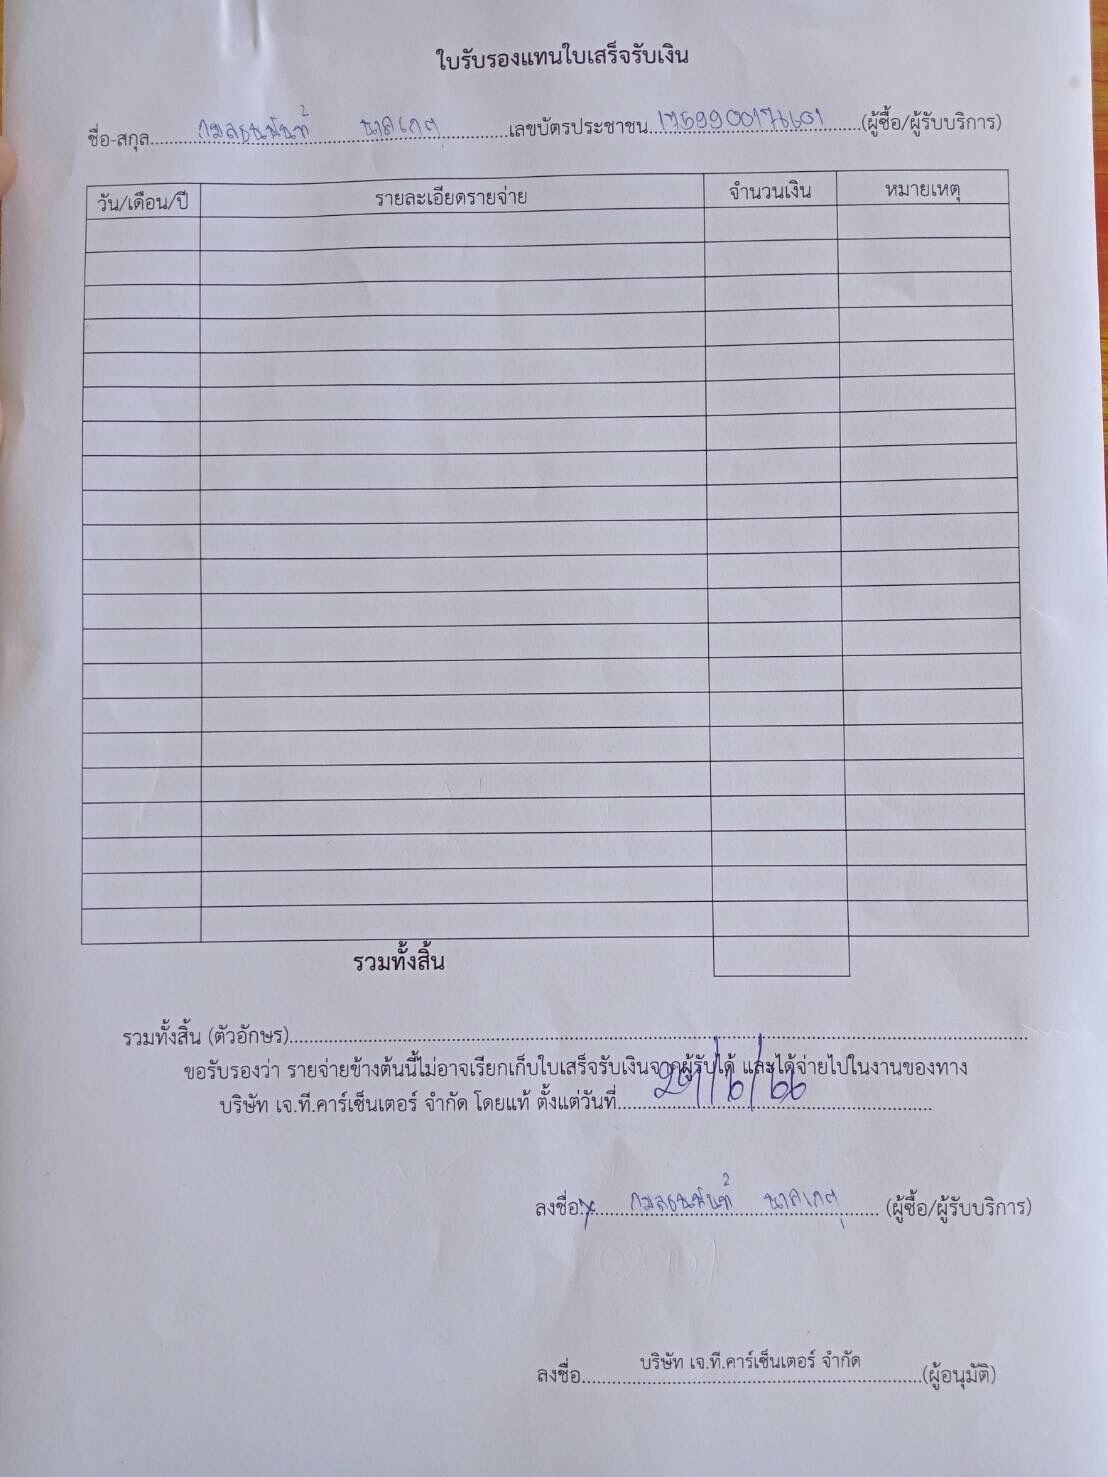 ใบรับรองแทนใบเสร็จรับเงิน
ชื่อ-สกุล กมลธนนันท์ นาคเกตุ เลขบัตรประชาชน (ผู้ซื้อ/ผู้รับบริการ)
วัน/เดือน/ปี รายละเอียดรายจ่าย จำนวนเงิน หมายเหตุ
รวมทั้งสิ้น
รวมทั้งสิ้น (ตัวอักษร)
ขอรับรองว่า รายจ่ายข้างต้นนี้ไม่อาจเรียกเก็บใบเสร็จรับเงินจากผู้รับได้ และได้จ่ายไปในงานของทาง
บริษัท เจ.ที.คาร์เซ็นเตอร์ จำกัด โดยแท้ ตั้งแต่วันที่
ลงชื่อ กมลธนนันท์ นาคเกตุ (ผู้ซื้อ/ผู้รับบริการ)
ลงชื่อ บริษัท เจ.ที.คาร์เซ็นเตอร์ จำกัด (ผู้อนุมัติ)